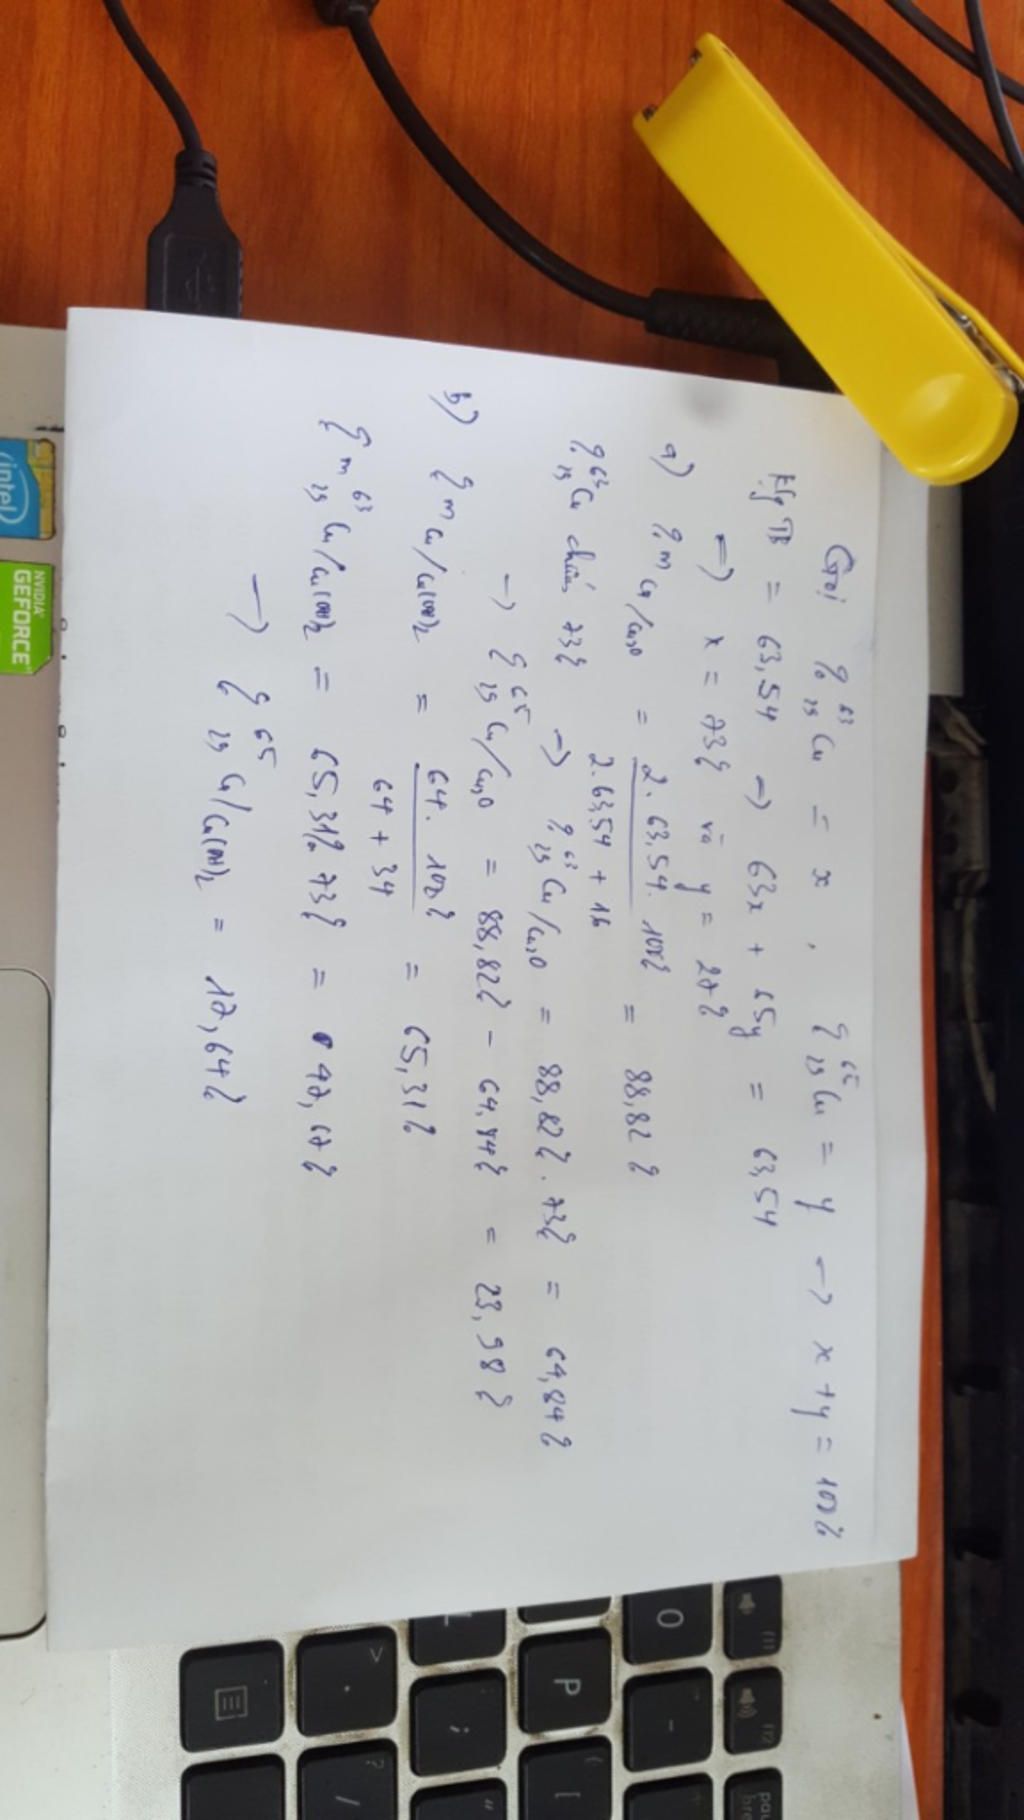 Gọi % ⁶³₂₉Cu = x , % ⁶⁵₂₉Cu = y → x + y = 100%
= 63,54 → 63x + 65y = 63,54
=> x = 73% và y = 27%
a) % m Cu/Cu₂O = 2. 63,54. 100% / 2.63,54 + 16 = 88,82 %
% ⁶³₂₉Cu chiếm 73% → % ⁶³₂₉Cu/Cu₂O = 88,82%. 73% = 64,84%
→ % ⁶⁵₂₉Cu/Cu₂O = 88,82% - 64,84% = 23,98%
b) % m Cu/Cu(OH)₂ = 64. 100% / 64 + 34 = 65,31%
% m ⁶³₂₉Cu/Cu(OH)₂ = 65,31%. 73% = 47,67%
→ % ⁶⁵₂₉Cu/Cu(OH)₂ = 17,64%
intel
NVIDIA
GEFORCE
O
P
[
>
.
;
?
/
"
-